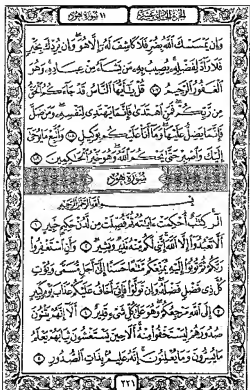 الجزء الحادي عشر ١١ سورة هود
وَإِن يَمْسَسْكَ اللَّهُ بِضُرٍّ فَلَا كَاشِفَ لَهُ إِلَّا هُوَ وَإِن يُرِدْكَ بِخَيْرٍ
فَلَا رَادَّ لِفَضْلِهِ يُصِيبُ بِهِ مَن يَشَاءُ مِنْ عِبَادِهِ وَهُوَ
الْغَفُورُ الرَّحِيمُ قُلْ يَا أَيُّهَا النَّاسُ قَدْ جَاءَكُمُ الْحَقُّ
مِن رَّبِّكُمْ فَمَنِ اهْتَدَى فَإِنَّمَا يَهْتَدِي لِنَفْسِهِ وَمَن ضَلَّ
فَإِنَّمَا يَضِلُّ عَلَيْهَا وَمَا أَنَا عَلَيْكُم بِوَكِيلٍ وَاتَّبِعْ مَا يُوحَى
إِلَيْكَ وَاصْبِرْ حَتَّى يَحْكُمَ اللَّهُ وَهُوَ خَيْرُ الْحَاكِمِينَ
سُورَةُ هُودٍ
بِسْمِ اللَّهِ الرَّحْمَنِ الرَّحِيمِ
الر كِتَابٌ أُحْكِمَتْ آيَاتُهُ ثُمَّ فُصِّلَتْ مِن لَّدُنْ حَكِيمٍ خَبِيرٍ
أَلَّا تَعْبُدُوا إِلَّا اللَّهَ إِنَّنِي لَكُم مِّنْهُ نَذِيرٌ وَبَشِيرٌ وَأَنِ اسْتَغْفِرُوا
رَبَّكُمْ ثُمَّ تُوبُوا إِلَيْهِ يُمَتِّعْكُم مَّتَاعًا حَسَنًا إِلَى أَجَلٍ مُّسَمًّى وَيُؤْتِ
كُلَّ ذِي فَضْلٍ فَضْلَهُ وَإِن تَوَلَّوْا فَإِنِّي أَخَافُ عَلَيْكُمْ عَذَابَ يَوْمٍ كَبِيرٍ
إِلَى اللَّهِ مَرْجِعُكُمْ وَهُوَ عَلَى كُلِّ شَيْءٍ قَدِيرٌ أَلَا إِنَّهُمْ يَثْنُونَ
صُدُورَهُمْ لِيَسْتَخْفُوا مِنْهُ أَلَا حِينَ يَسْتَغْشُونَ ثِيَابَهُمْ يَعْلَمُ
مَا يُسِرُّونَ وَمَا يُعْلِنُونَ إِنَّهُ عَلِيمٌ بِذَاتِ الصُّدُورِ
٢٢١